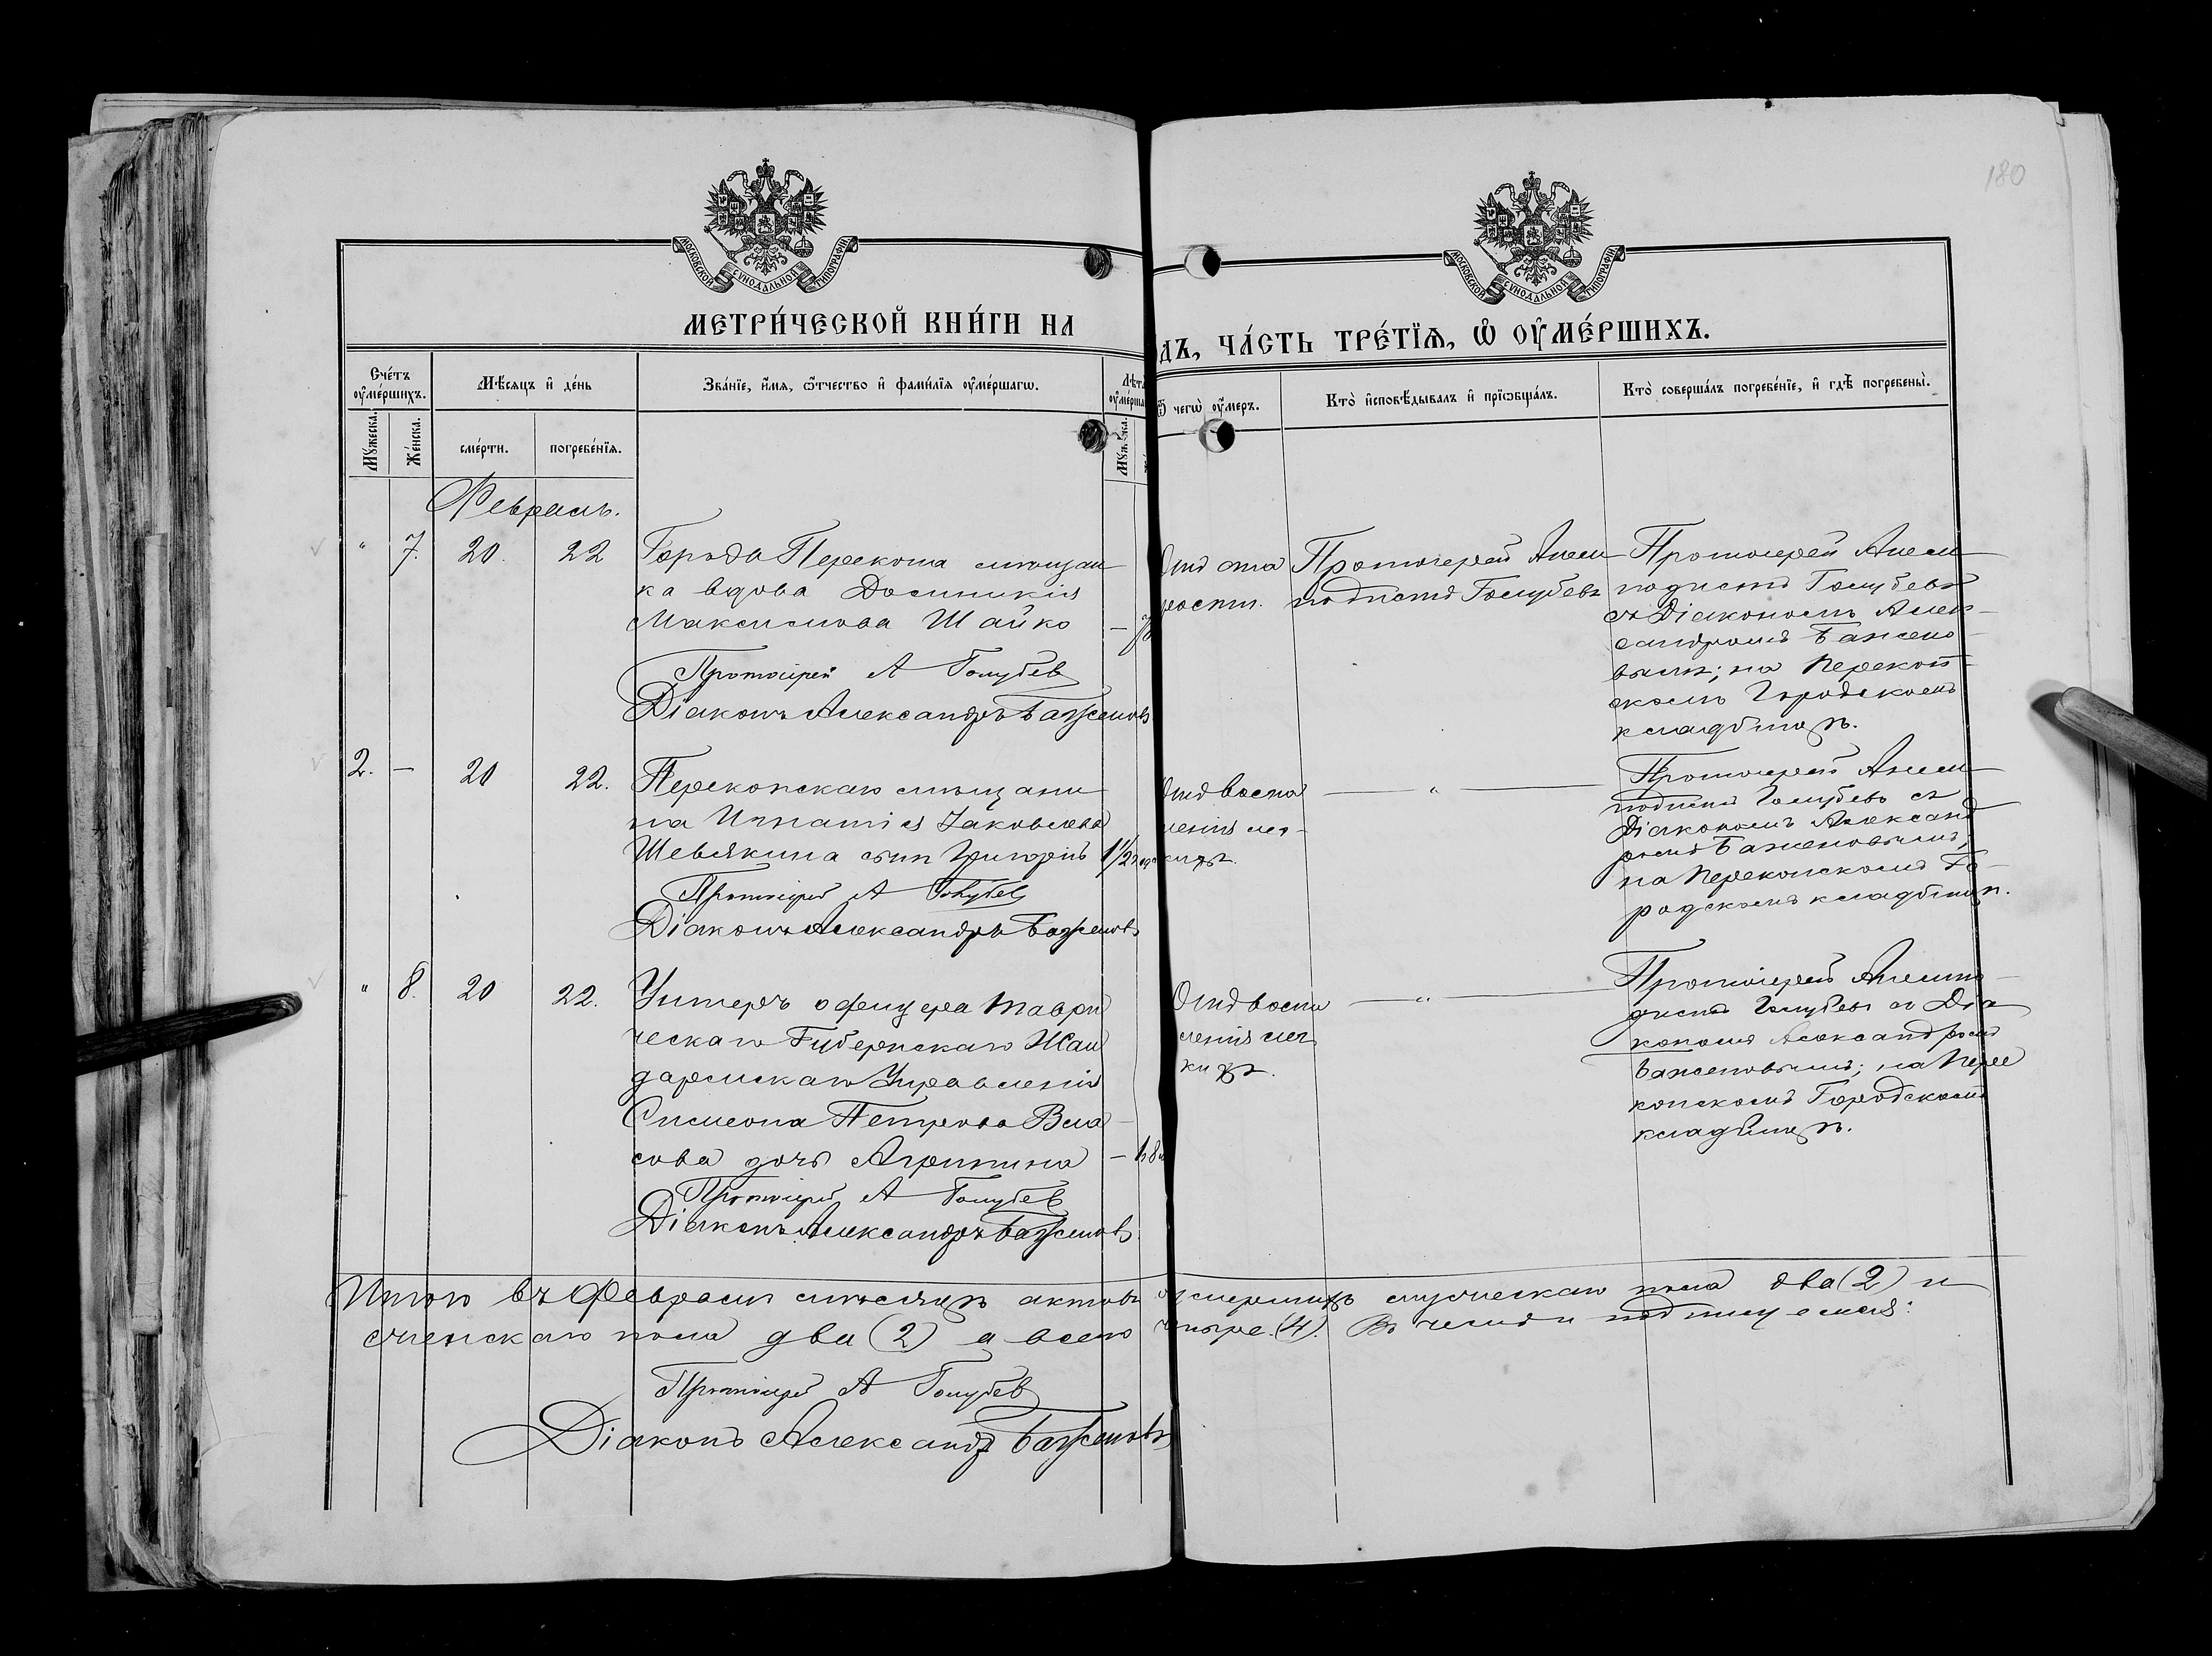 180
МОСКОВСКОЙ СѴНОДАЛЬНОЙ ТИПОГРАФІИ
МОСКОВСКОЙ СѴНОДАЛЬНОЙ ТИПОГРАФІИ
МЕТРИ́ЧЕСКОЙ КНИ́ГИ НА
ДЪ, ЧА́СТЬ ТРЕ́ТІѦ, Ѡ҆ ОУ҆МЕ́РШИХЪ.
Сче́тъ оу҆ме́ршихъ.
Мꙋ́жеска.
Же́нска.
Мѣ́сяцъ и҆ де́нь
сме́рти.
погребе́нїя.
Зва́нїе, и҆́мя, ѻ҆́тчество и҆ фами́лїя оу҆ме́ршагѡ.
Ѿ чегѡ̀ оу҆́меръ.
Кто̀ и҆сповѣ́дывалъ и҆ прїѻбща́лъ.
Кто̀ соверша́лъ погребе́нїе, и҆ гдѣ̀ погребены̀.
Февраль.
" 7. 20. 22
Города Перекопа мѣщан
ка вдова Домникія
Максимова Шайко —
Протоіерей А Голубев
Діаконъ Александръ Баженовъ
Отъ ста
рости.
Протоіерей Анем
подистъ Голубевъ
Протоіерей Анем
подистъ Голубевъ
съ Діакономъ Алек-
сандромъ Бажено-
вымъ; на Перекоп-
скомъ Городскомъ
кладбищѣ.
2. — 20 22.
Перекопскаго мѣщани
на Игнатія Іаковлева
Шевякина сынъ Григорій 1½
Протоіерей А Голубев
Діаконъ Александръ Баженовъ
Отъ воспа
ленія лег-
кихъ.
— " —
Протоіерей Анем
подистъ Голубевъ съ
Діакономъ Александ
ромъ Баженовымъ,
на Перекопскомъ Го-
родскомъ кладбищѣ.
" 8. 20 22.
Унтеръ офицера Таври
ческаго Губернскаго Жан
дармскаго Управленія
Симеона Петрова Вла-
сова дочь Агрипина —
Протоіерей А Голубев
Діаконъ Александръ Баженовъ
Отъ воспа
ленія лег
кихъ.
— " —
Протоіерей Анемпо-
дистъ Голубевъ съ Діа
кономъ Александромъ
Баженовымъ; на Пере
копскомъ Городскомъ
кладбищѣ.
Итого въ Февралѣ мѣсяцѣ актовъ умершихъ мужескаго пола два (2) и
женскаго пола два (2) а всего четыре (4). Въ чемъ и подпишемся:
Протоіерей А Голубев
Діаконъ Александръ Баженовъ